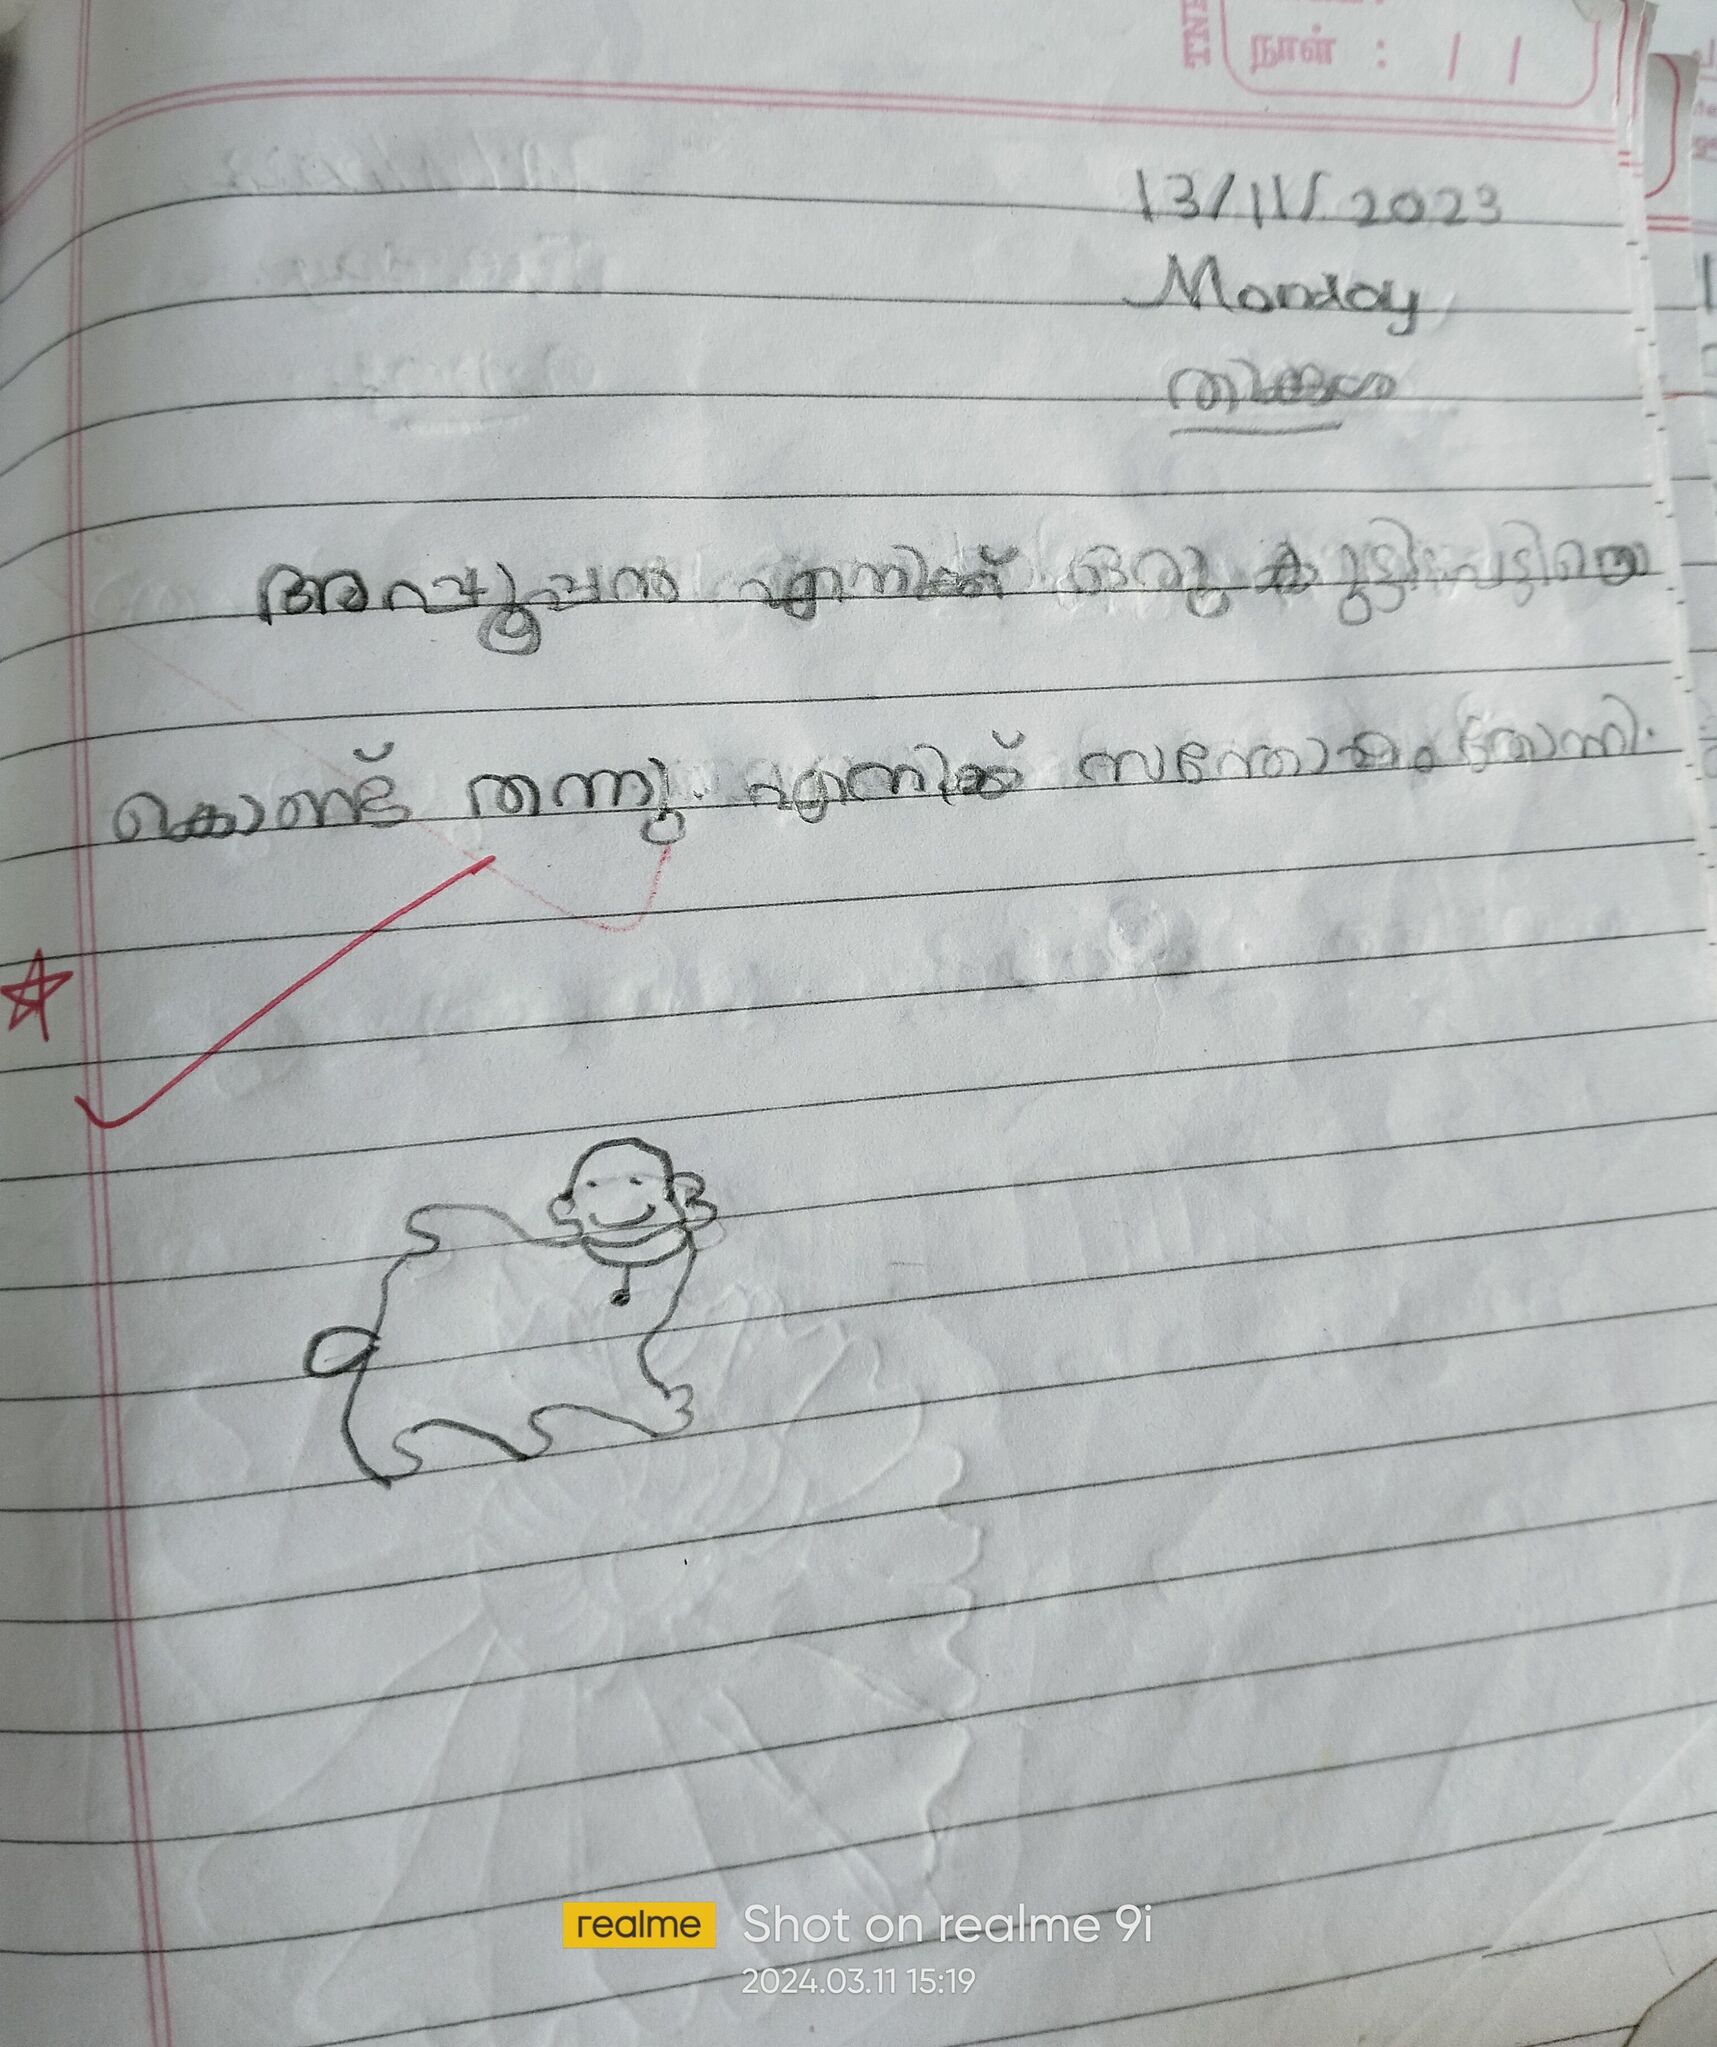 நாள் : / /
13/11/2023
Monday
തിങ്കൾ
അപ്പൂപ്പൻ എനിക്ക് ഒരു കുട്ടിപട്ടിയെ
കൊണ്ട് തന്നു. എനിക്ക് സന്തോഷം തോന്നി.
realme Shot on realme 9i
2024.03.11 15:19